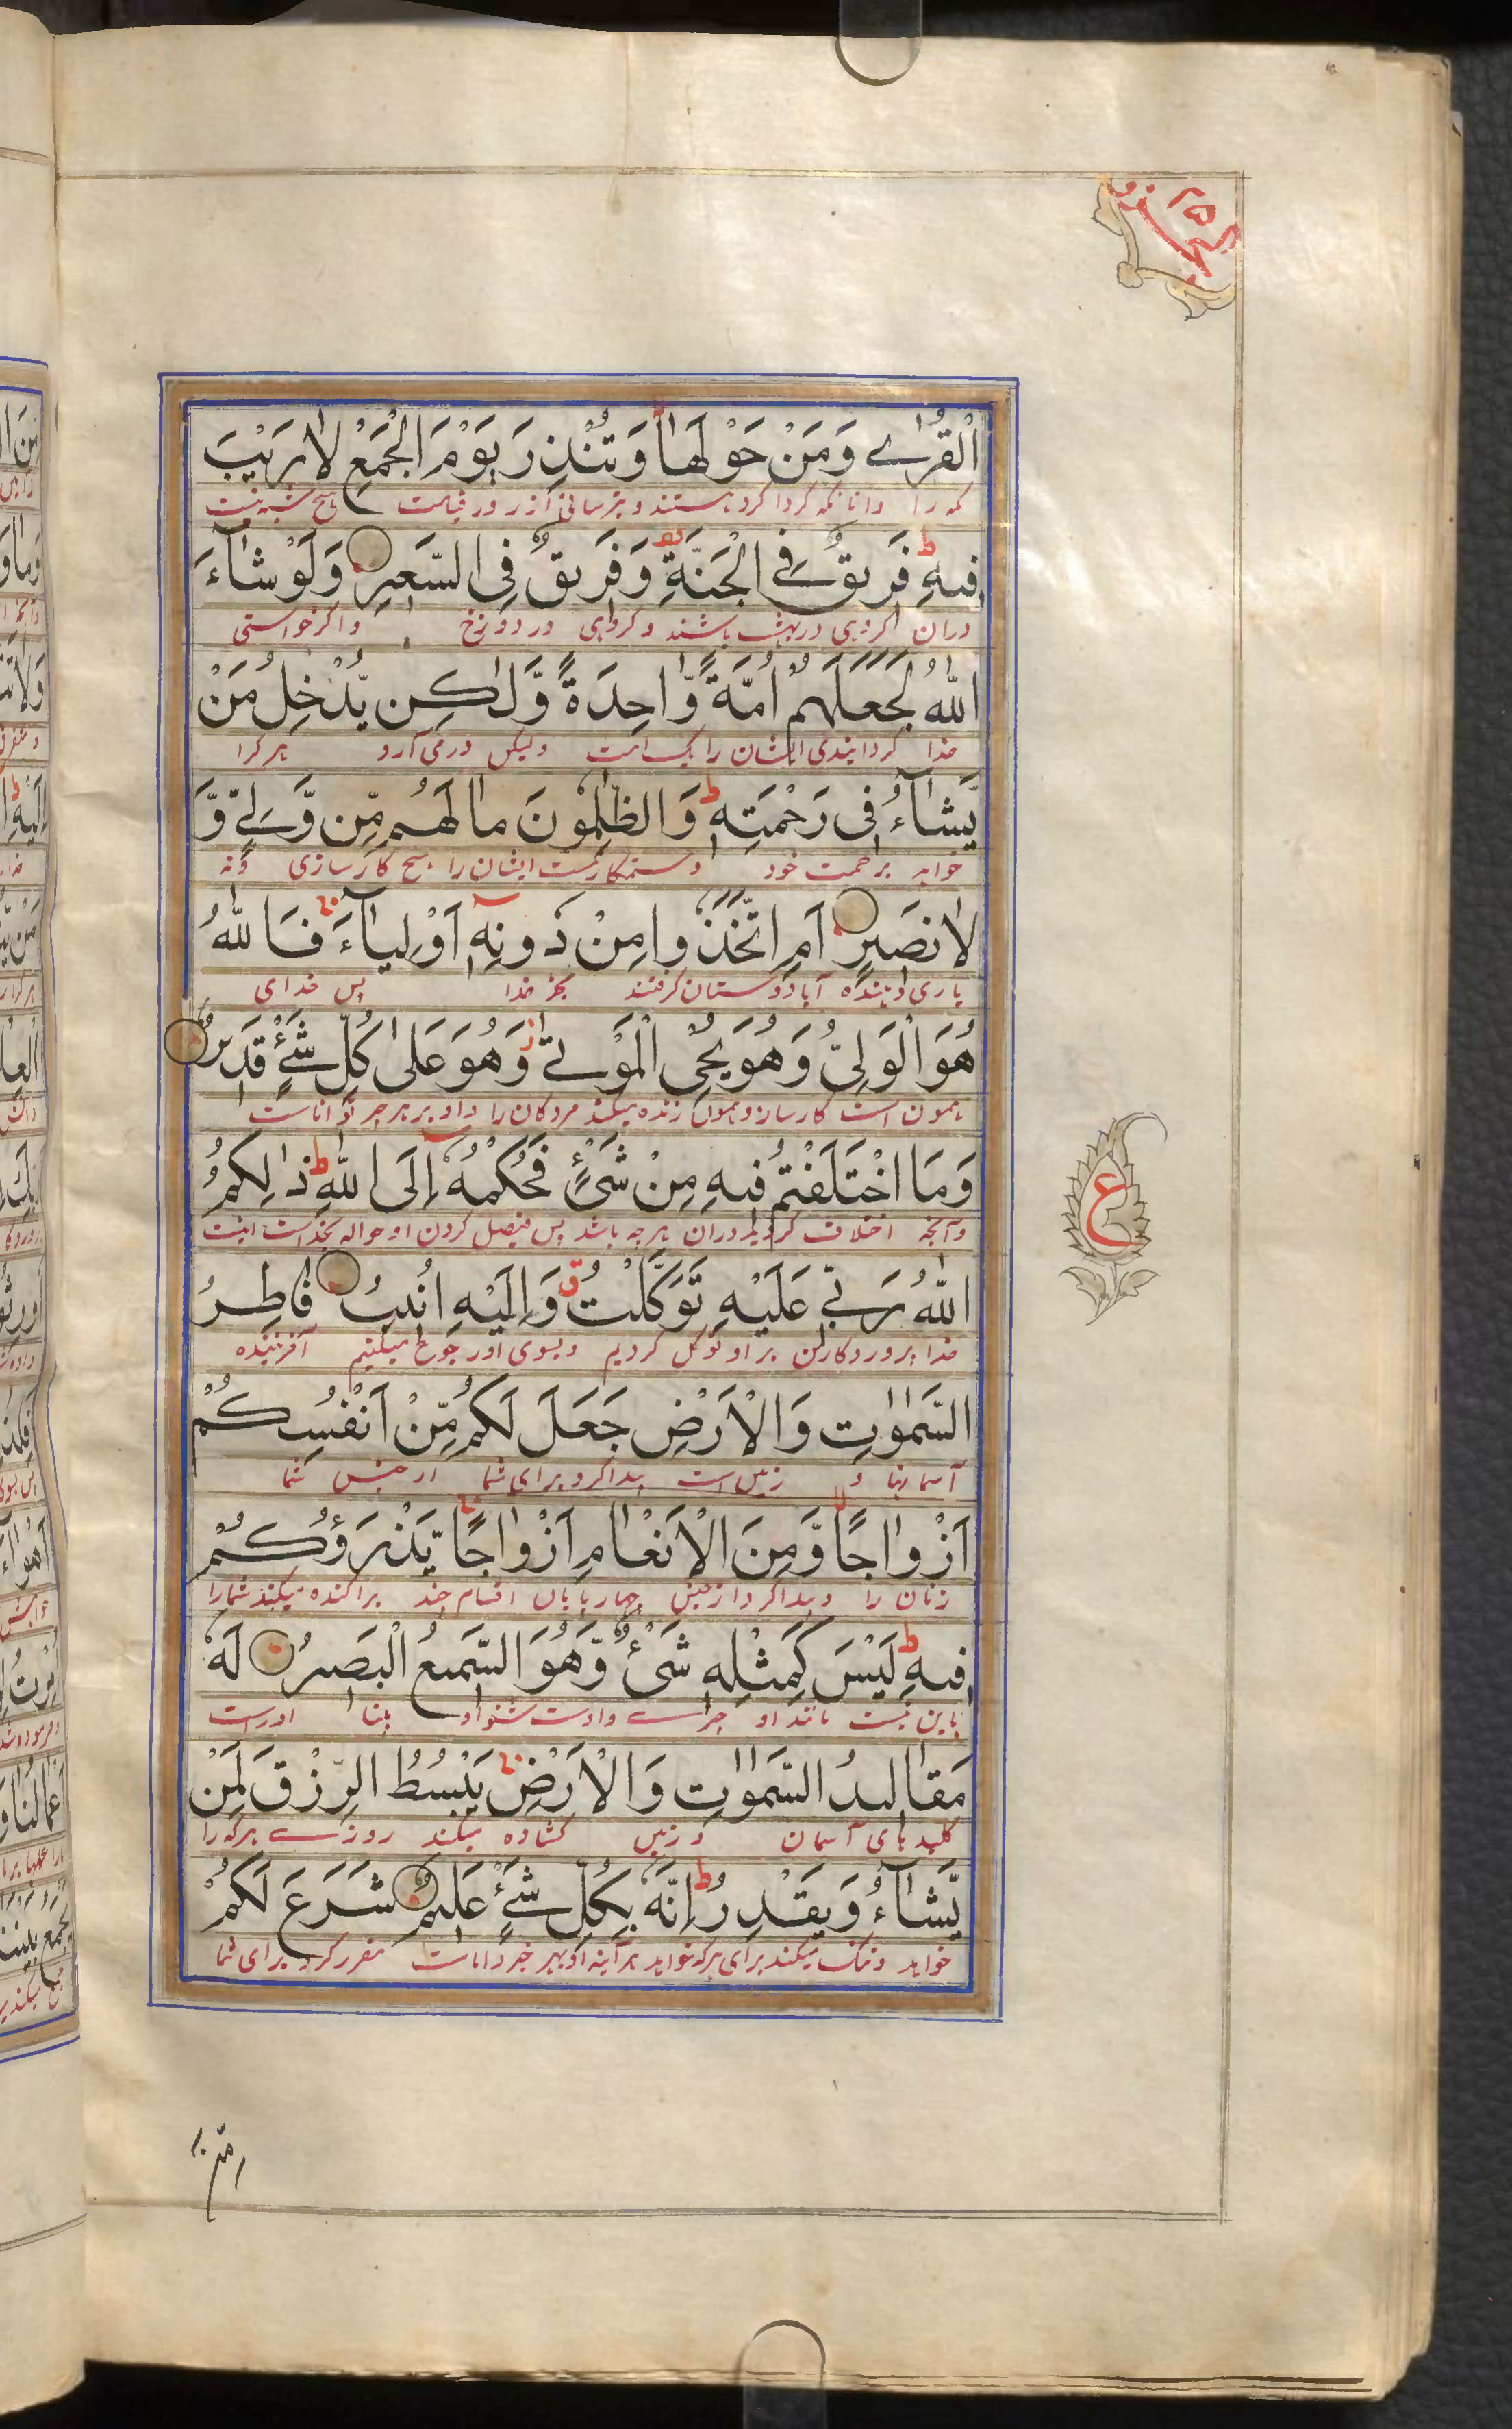 الجزو ٢٥
الْقُرٰے وَمَنْ حَوْلَهَا وَتُنْذِرَ يَوْمَ الْجَمْعِ لَا رَيْبَ
مکه را وانانکه کرداکرد هستند و بترسانی از روز قیامت هیچ شبه نیست
فِيهِ ط فَرِيقٌ فِے الْجَنَّةِ وَفَرِيقٌ فِي السَّعِيرِ وَلَوْ شَآءَ
دران کروهی در بهشت باشند و کروهی در دوزخ و اکر خواستی
اللّٰهُ لَجَعَلَهُمْ اُمَّةً وَّاحِدَةً وَّلٰكِن يُّدْخِلُ مَنْ
خدا کردانیدی ایشان را یک امت ولیکن درمی آرد هر کرا
يَّشَآءُ فِي رَحْمَتِهٖ ط وَالظّٰلِمُونَ مَا لَهُم مِّن وَّلِےٍّ وَّ
خواهد برحمت خود و ستمکار نیست ایشان را هیچ کارسازی ونه
لَا نَصِيرٍ اَمِ اتَّخَذُوا مِنْ دُونِهٖ اَوْلِيَآءَ فَاللّٰهُ
یاری دهنده آیا دوستان کرفتند بجز خدا پس خدای
هُوَ الْوَلِيُّ وَهُوَ يُحْيِ الْمَوْتٰے وَهُوَ عَلٰى كُلِّ شَےْءٍ قَدِيرٌ
همون است کارساز و همون زنده میکند مردکان را و او بر هر چیز توانا است
وَمَا اخْتَلَفْتُمْ فِيهِ مِنْ شَيْءٍ فَحُكْمُهٗٓ اِلَى اللّٰهِ ط ذٰلِكُمُ
وآنچه اختلاف کردید دران هرچه باشد پس فیصل کردن او حواله بخداست اینست
اللّٰهُ رَبِّے عَلَيْهِ تَوَكَّلْتُ ق وَاِلَيْهِ اُنِيبُ فَاطِرُ
خدا پروردکار من بر او توکل کردیم و بسوی او رجوع میکنیم آفریننده
السَّمٰوٰتِ وَالْاَرْضِ جَعَلَ لَكُم مِّنْ اَنْفُسِكُمْ
آسمانها و زمین است پیدا کرد برای شما از جنس شما
اَزْوَاجًا وَّمِنَ الْاَنْعَامِ اَزْوَاجًا يَّذْرَؤُكُمْ
زنان را و پیدا کرد از جنس چهارپایان اقسام چند پراکنده میکند شما را
فِيهِ ط لَيْسَ كَمِثْلِهٖ شَيْءٌ وَّهُوَ السَّمِيعُ الْبَصِيرُ لَهٗ
باین نیست مانند او چیزے و اوست شنوا و بینا اوراست
مَقَالِيدُ السَّمٰوٰتِ وَالْاَرْضِ يَبْسُطُ الرِّزْقَ لِمَن
کلیدهای آسمان و زمین کشاده میکند روزے هر که را
يَّشَآءُ وَيَقْدِرُ ط اِنَّهٗ بِكُلِّ شَےْءٍ عَلِيمٌ شَرَعَ لَكُمْ
خواهد و تنک میکند برای هر که خواهد هر آینه او بهر چیز دانا است مقرر کرد برای شما
ع